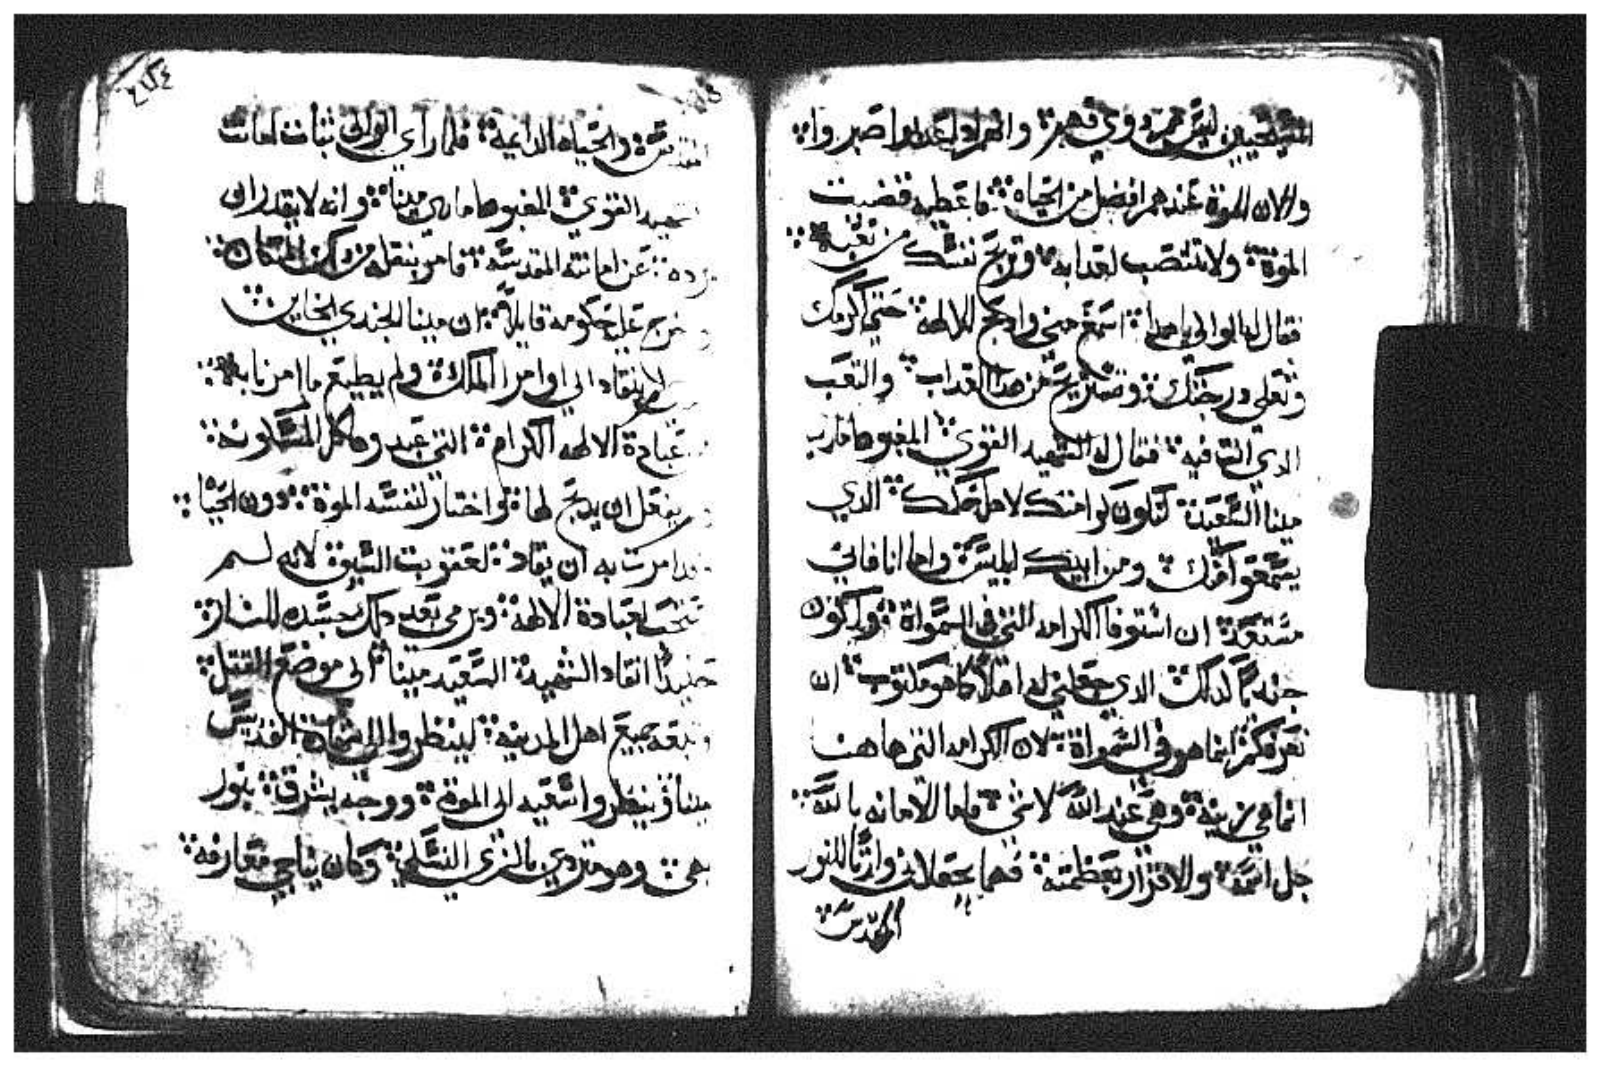 المسيحيين ليس همر دوي فهم والعدابوا صبروا
والان الموة عندهم افضل من الحياه فاعطيه قضيت
الموة ولا تنتصب لعدابه وتريح نفسك من تعبه
فقال له الوالي يا مينا اسمع مني وادبح للالهة حتي اكرمك
وتعلي درجتك وتستريح من هدا العداب والتعب
الدي انت فيه فقال له الشهيد القوي المغبوط مارى
مينا السعيد تكون كرامتك لاهل الدي
ومن ابيك ابليس واما انا فاني
مستعد ان استوفا الكرامه التي في السمواة
جزية كدلك الدي جعلني له اهلا كما هو مكتوب ان
تعرفكم انما هو في السمواة لان الكرامه التي هاهنا
انما هي زينة وهي عند الله لا شي فاما الامانه بالله
جل اسمه والاقرار بعظمته فهما يجعلان وارثا للنور
المقدس
المقدسة والحياه الدايمة فلما راي الوالي ثبات امانت
الشهيد القوي المغبوط ماري مينا وانه لا يقدر ان
يرده عن امانته المقدسه فامر بنقله من دلك المكان
وخرج علي حكومه قايلا ان مينا الجندي الخاين
لا ينقاد الي اوامر الملك ولم يطيع ما امرنا به
من عبادة الالهه الكرام التي عبدوها كل المسكونة
ولم يفعل ان يدبح لها واختار لنفسه الموة دون الحياة
وقد امرت به ان يقاد لعقوبت السيف لانه لم
ينتخب لعبادة الالهة ويرمي بعد دلك جسده للنار
حينيدا انقاد الشهيد السعيد مينا الي موضع القتل
وتبعه جميع اهل المدينة لينظروا الي شهادة القديس
مينا فينظروا سعيه الي الموة ووجهه يشرق بنور
بهي وهو متردي بالزي النسكي وكان يناجي معارفه